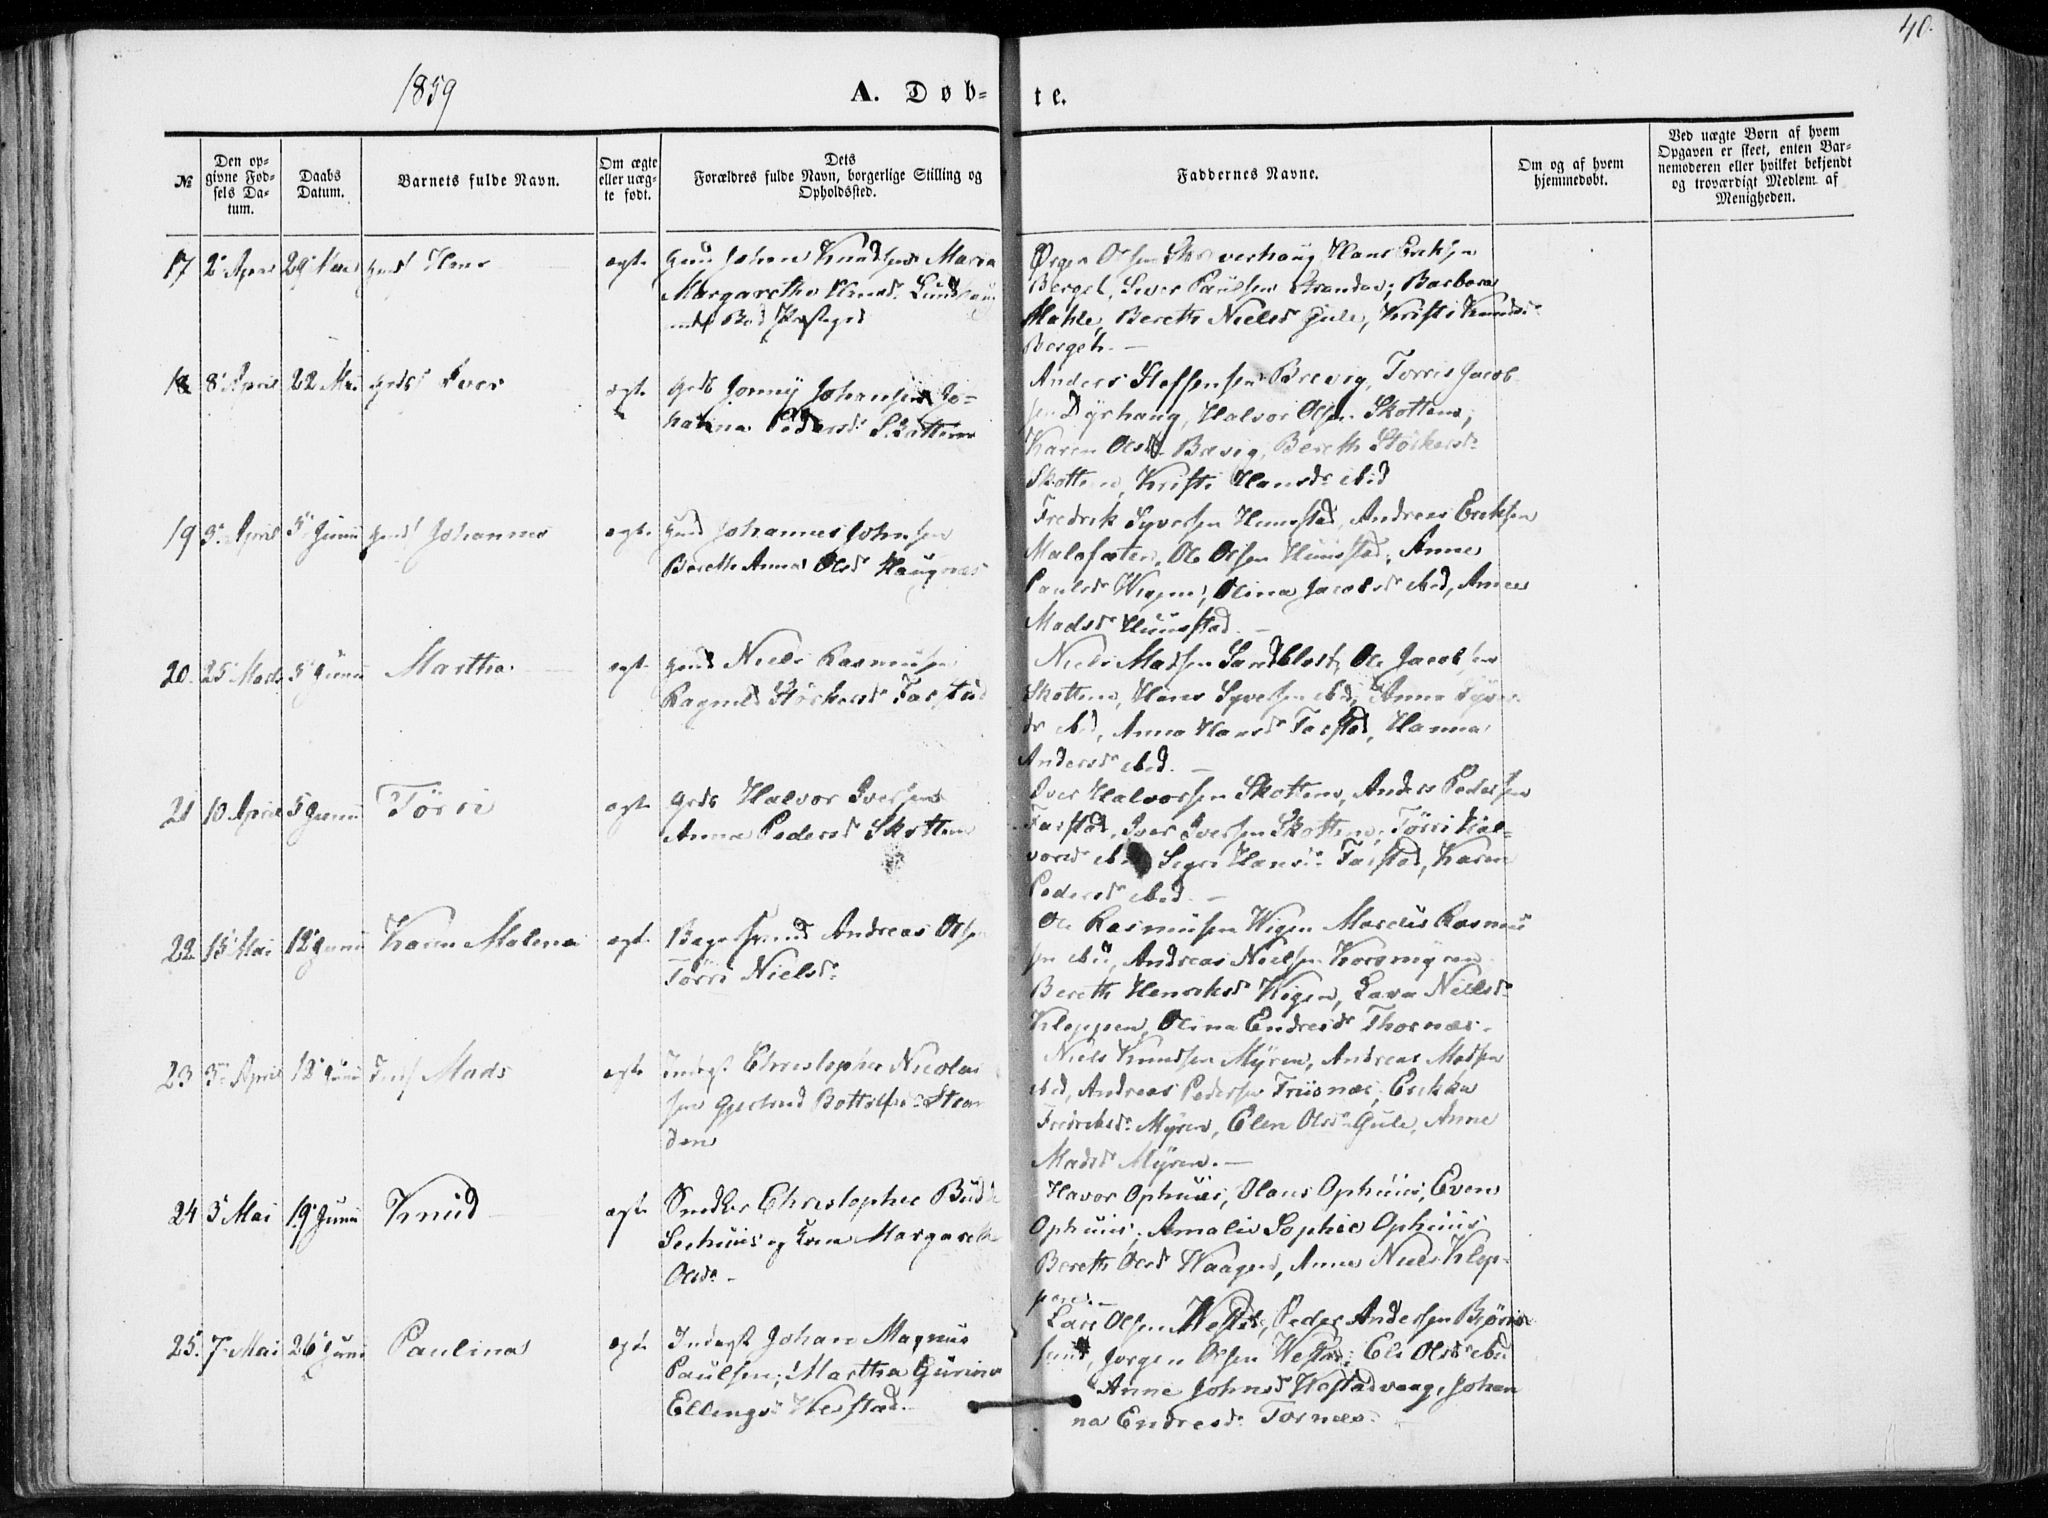 40.
1859
A. Døb-te.
№
Den opgivne Fødsels Datum.
Daabs Datum.
Barnets fulde Navn.
Om ægte eller uægte født.
Dets Forældres fulde Navn, borgerlige Stilling og Opholdssted.
Faddernes Navne.
Om og af hvem hjemmedøbt.
Ved uægte Børn af hvem Opgaven er skeet, enten Barnemoderen eller hvilket bekjendt og troværdigt Medlem af Menigheden.
17 2 April 29 Hans ægte Johan Knudsen Maria
Margrethe
Olsen Hans Eriksen
Berget, Iver Paulsen Stranden; Barbara
Male, Bereth Nielsd Gule, Kristi Knudsd
Berget. —
18 8 April 22 Mai Iver ægte Jonny Johansen Jo-
hanna Pedersd Skottem
Anders Steffensen Brevig, Torris Jacob
sen Dyrhaug, Halvor Olsen Skottem;
Karen Olsd Brevig, Bereth Størkersd
Skottem, Kristi Hansd ibid
19 5 April 5 Juni Johannes ægte Johannes Johnsen
Bereth Anna Olsd Haugnæs
Fredrik Syversen Hunstad, Andreas Eriksen
Malefæten, Ole Olsen Hunstad; Anne
Paulsd Wigen; Olina Jacobsd ibid, Anne
Madsd Hunstad. —
20. 25 Marts 5 Juni Martha ægte Niels Rasmusen
Ragnild Størkersd Farstad
Niels Madsen Sandblost, Ole Jacobsen
Skottem, Hans Syversen ibid; Anna Syver
dr ibid, Anna Hansd Farstad, Hanna
Andersd ibid. —
21 10 April 5 Juni Törri ægte Halvor Iversen
Anna Pedersd Skottem
Iver Halvorsen Skottem, Anders Pedersen
Farstad, Iver Iversen Skottem; Törri Hal-
vorsd ibid Segri Hansd Farstad, Karen
Pedersd ibid. —
22 15 Mai 12 Juni Karen Malena ægte Andreas Olsen
Törri Nielsd
Ole Rasmusen Wigen Marcus Rasmu
sen ibid, Andreas Nielsen Korsmyren
Bereth Henriksd Wigen, Lava Nielsd
Kleppen, Olina Endresd Thornæs.
23 3 April 12 Juni Mads ægte Inderst Christopher Nicolai
sen Gjertrud Bottolfsd Stran
den
Niels Knudsen Myren, Andreas Madsen
ibid, Andreas Pedersen Friisnæs; Erikka
Fredriksd Myren, Elen Olsd Gule, Anne
Madsd Myren. —
24 3 Mai 19 Juni Knud ægte Snedker Christopher Budde
Seehuus og Kone Margareth
Olsd —
Havor Ophuus, Olaus Ophuus; Even
Ophuus; Amalie Sophie Ophuus
Bereth Olsd Waagen, Anne Niels Klep-
pen —
25. 7 Mai 26 Juni Paulina ægte Inderst Johan Magnus
Paulsen; Martha Gurina
Ellingsd Westad
Lars Olsen Westad, Peder Andersen Bjørn
sund, Jørgen Olsen Westad; Eli Olsd ibid
Anne Johnsd Westadvaag, Johan
na Endresd Tornæs.